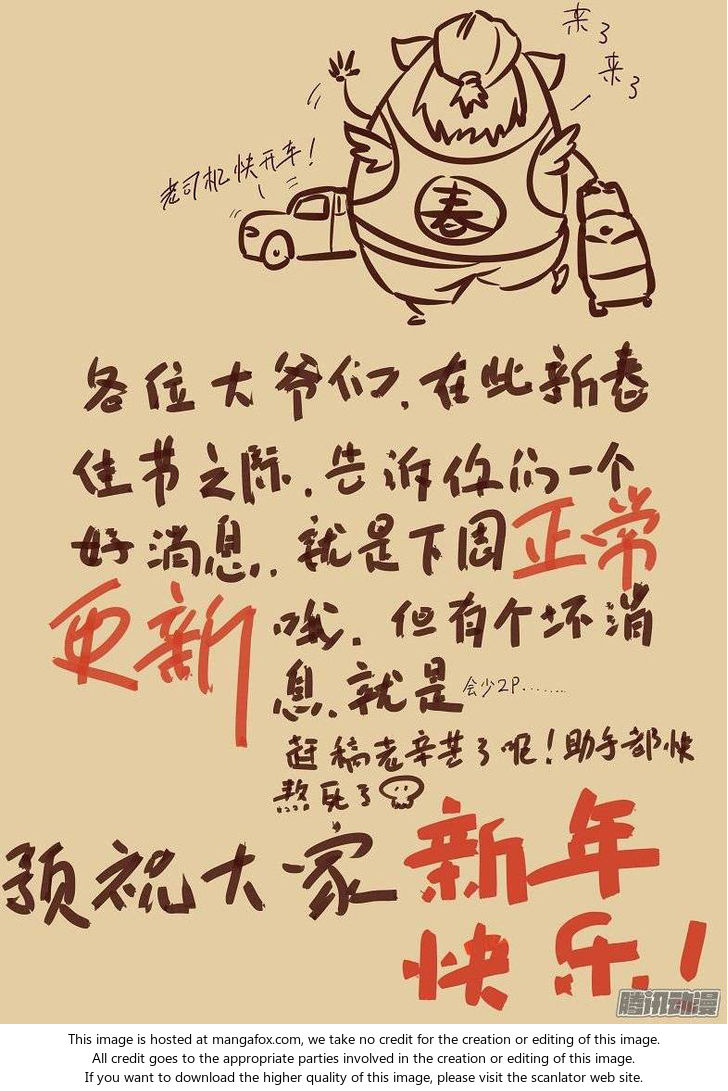 来了
来了
老司机快开车！
春
各位大爷们，在此新春
佳节之际，告诉你们一个
好消息，就是下周正常
更新哦，但有个坏消
息，就是会少2P.......
赶稿老辛苦了呢！助手都快
熬死了
预祝大家新年
快乐！
腾讯动漫
This image is hosted at mangafox.com, we take no credit for the creation or editing of this image.
All credit goes to the appropriate parties involved in the creation or editing of this image.
If you want to download the higher quality of this image, please visit the scanlator web site.